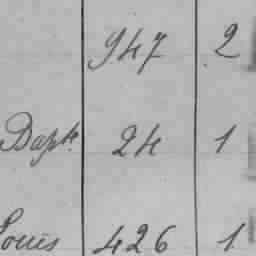 947 2
Bapt. 24 1
Louis 426 1